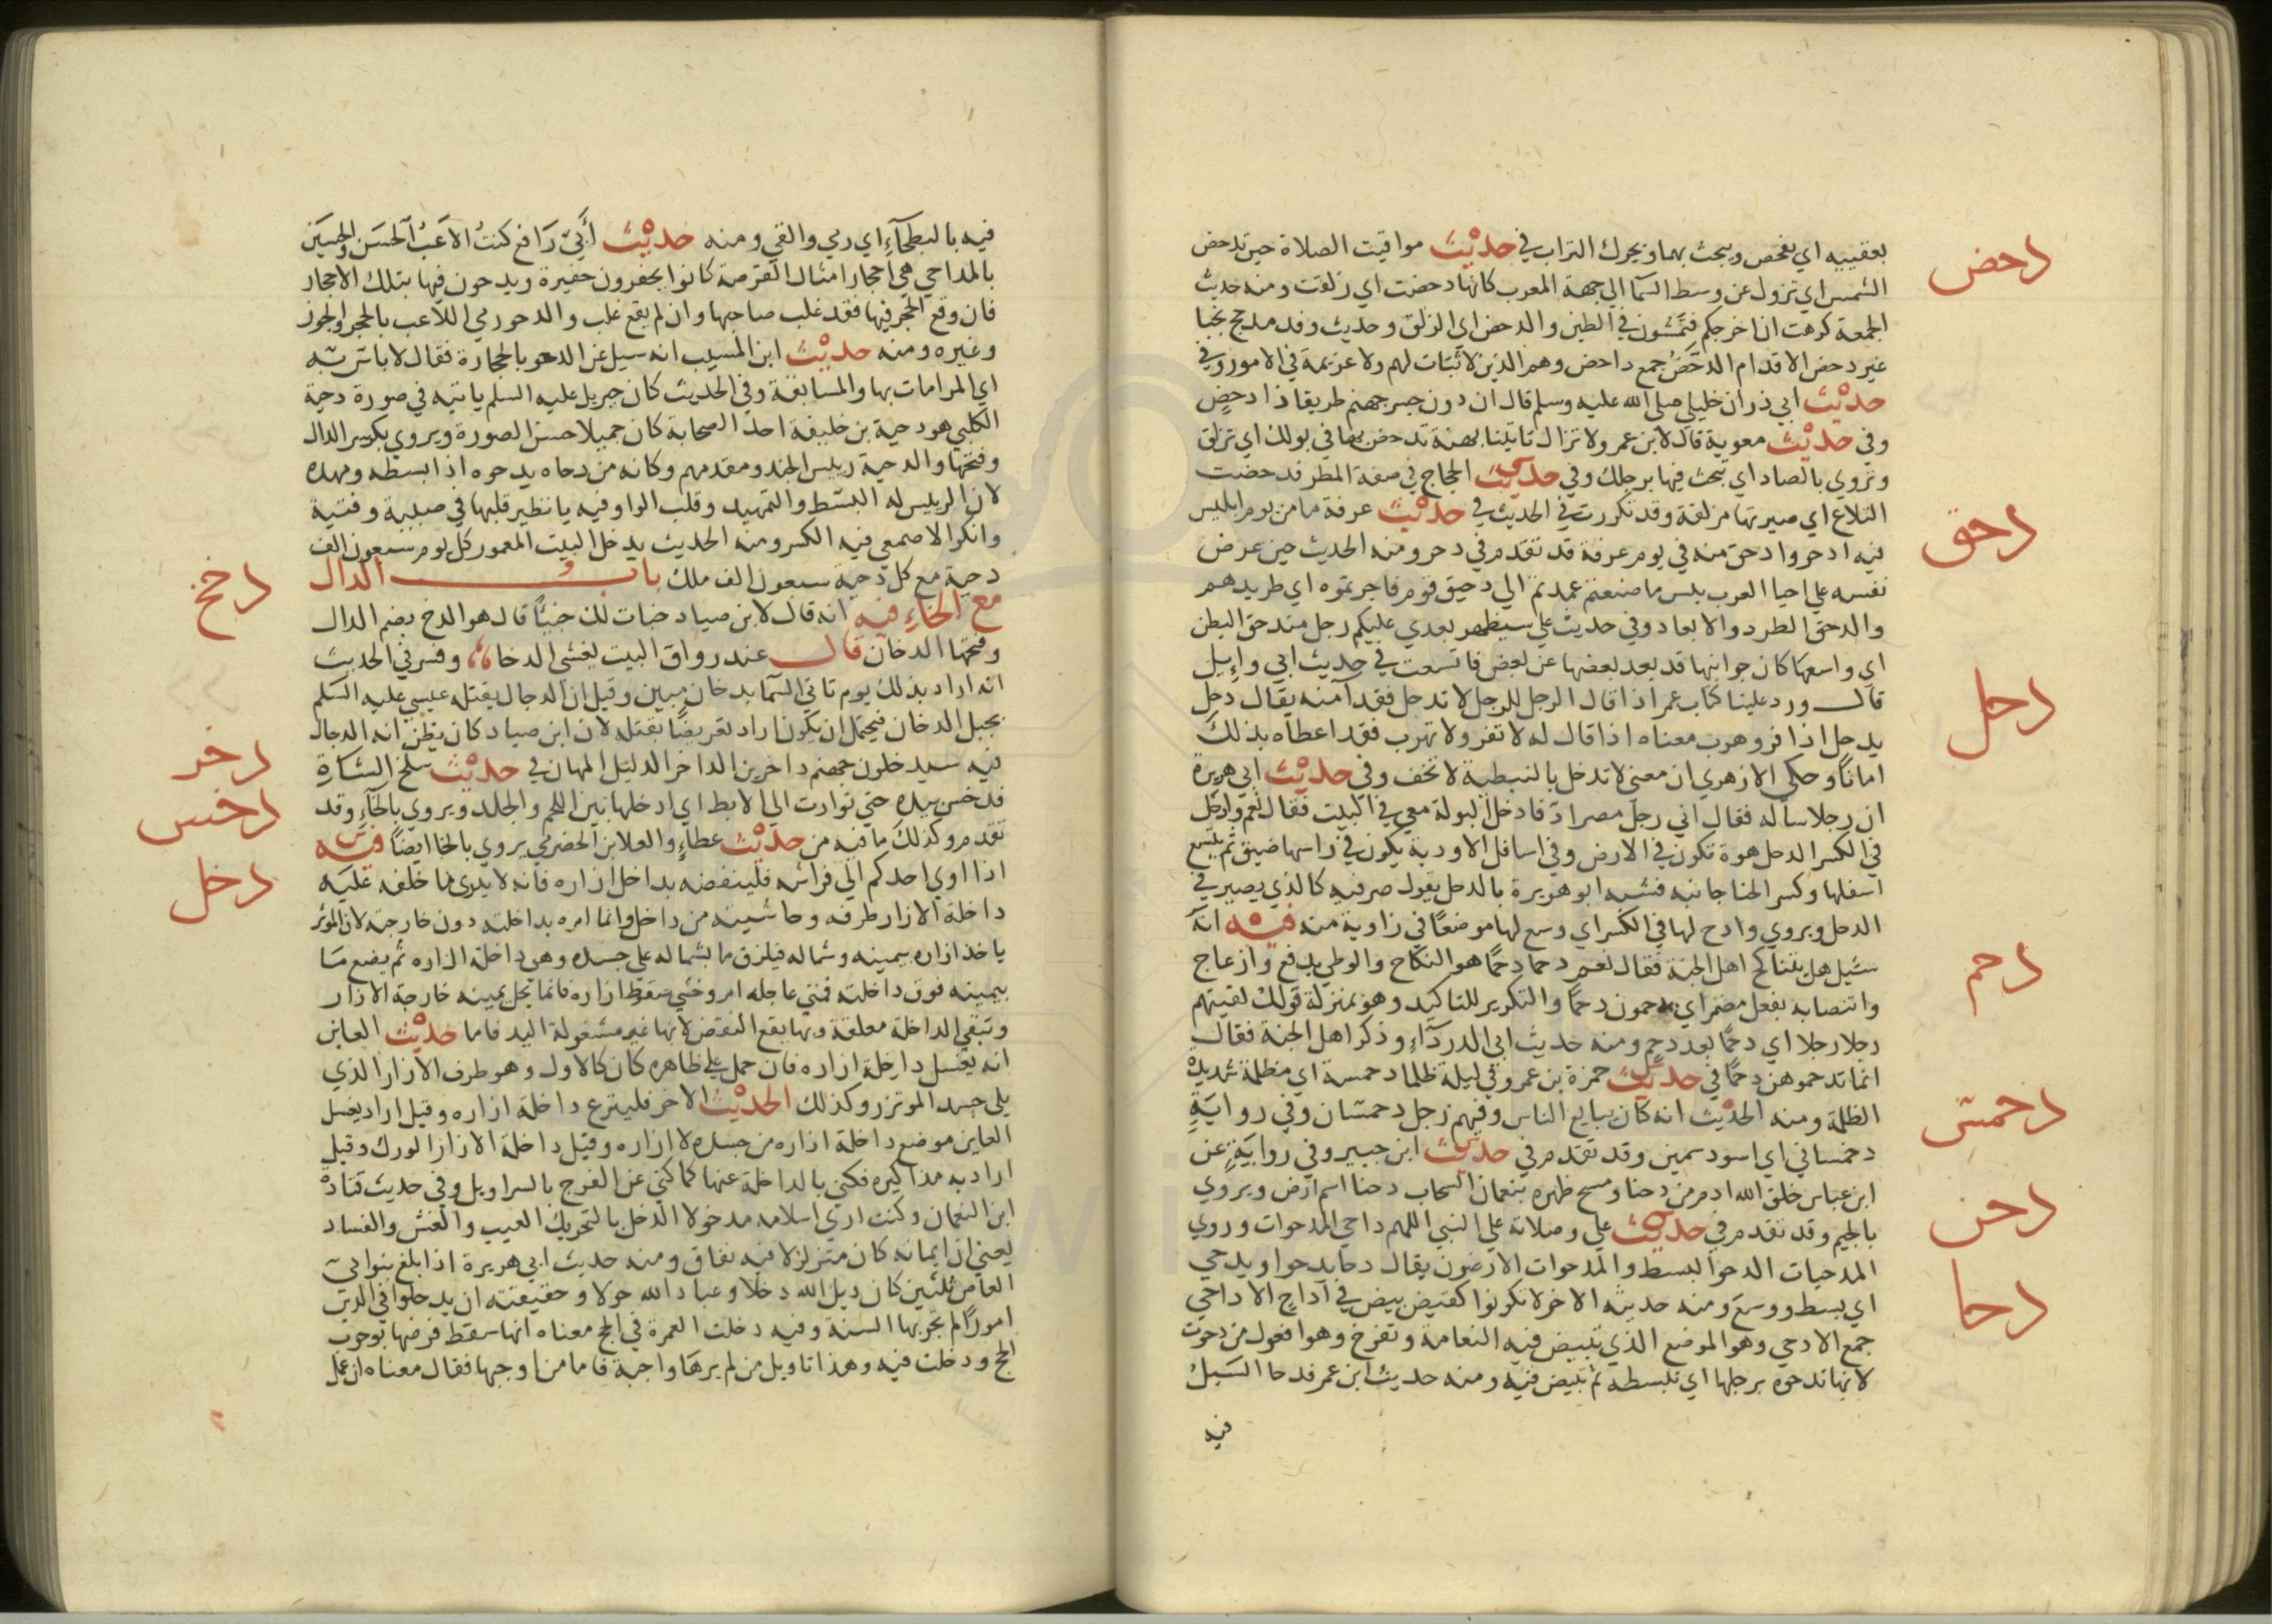 بعقبيه اي يفحص ويبحث بهما ويحرك التراب في حديث مواقيت الصلاة حين تدحض
دحض
الشمس اي تزول عن وسط السما الي جهة المغرب كانها دحضت اي زلقت ومنه حديث
الجمعة كرهت ان اخرجكم فتمشون في الطين والدحض اي الزلق وحديث وفد مذحج نجبا
غير دحض الاقدام الدحض جمع داحض وهم الذين لا ثبات لهم ولا عزيمة في الامور وفي
حديث ابي ذر ان خليلي صلي الله عليه وسلم قال ان دون جسر جهنم طريقا ذا دحض
وفي حديث معوية قال لابن عمر ولا تزال تاتينا بهنة تدحض بها في بولك اي تزلق
وتروي بالصاد اي تبحث فيها برجلك وفي حديث الحجاج في صفة المطر فدحضت
التلاع اي صيرتها مزلقة وقد تكررت في الحديث في حديث عرفة ما من يوم ابليس
دحق
فيه ادحر وادحق منه في يوم عرفة قد تقدم في دحر ومنه الحديث حين عرض
نفسه علي احيا العرب بيس ما صنعتم عمدتم الي دحيق قوم فاجرتموه اي طريدهم
والدحق الطرد والابعاد وفي حديث علي سيظهر بعدي عليكم رجل مندحق البطن
اي واسعها كان جوانبها قد بعد بعضها عن بعض فاتسعت في حديث ابي وايل
دحل
قال ورد علينا كتاب عمر اذا قال الرجل للرجل لا تدحل فقد آمنه يقال دحل
يدحل اذا فر وهرب معناه اذا قال له لا تفر ولا تهرب فقد اعطاه بذلك
امانا وحكي الازهري ان معني لا تدحل بالنبطية لا تخف وفي حديث ابي هريرة
ان رجلا ساله فقال اني رجل مصراد فادخل البولة معي في البيت فقال نعم وادحل
في الكسر الدحل هوة تكون في الارض وفي اسافل الاودية يكون في راسها ضيق ثم يتسع
اسفلها وكسر الخبا جانبه فشبه ابو هريرة بالدحل يقول صر فيه كالذي يصير في
الدحل ويروي وادح لها في الكسر اي وسع لها موضعا في زاوية منه فيه انه
سئيل هل يتناكح اهل الجنة فقال نعم دحما دحما هو النكاح والوطي بدفع وازعاج
دحم
وانتصابه بفعل مضمر اي يدحمون دحما والتكرير للتاكيد وهو بمنزلة قولك لقيتهم
رجلا رجلا اي دحما بعد دحم ومنه حديث ابي الدردآء وذكر اهل الجنة فقال
انما تدحموهن دحما في حديث حمزة بن عمرو في ليلة ظلما دحمسة اي مظلمة شديدة
دحمس
الظلمة ومنه الحديث انه كان يبايع الناس وفيهم رجل دحمسان وفي رواية
دحمساني اي اسود سمين وقد تقدم في حديث ابن جبير وفي رواية عن
ابن عباس خلق الله ادم من دحنا ومسح ظهره بنعمان السحاب دحنا اسم ارض ويروي
دحن
بالجيم وقد تقدم في حديث علي وصلاته علي النبي اللهم داحي المدحوات وروي
المدحيات الدحو البسط والمدحوات الارضون يقال دحا يدحوا ويدحي
دحا
اي بسط ووسع ومنه حديثه الاخر لا تكونوا كقيض بيض في اداح الاداحي
جمع الادحي وهو الموضع الذي تبيض فيه النعامة وتفرخ وهو افعول من دحوت
لانها تدحوه برجلها اي تبسطه ثم تبيض فيه ومنه حديث ابن عمر فدحا السيل
فيه
فيه بالبطحآء اي رمي والقي ومنه حديث أبي رافع كنت الاعب الحسن والحسين
بالمداحي هي احجار امثال القرصة كانوا يحفرون حفيرة ويدحون فيها بتلك الاحجار
فان وقع الحجر فيها فقد غلب صاحبها وان لم يقع غلب والدحو رمي اللاعب بالحجر والجوز
وغيره ومنه حديث ابن المسيب انه سيل عن الدحو بالحجارة فقال لا باس به
اي المرامات بها والمسابقة وفي الحديث كان جبريل عليه السلم ياتيه في صورة دحية
الكلبي هو دحية بن خليفة احد الصحابة كان جميلا حسن الصورة ويروي بكسر الدال
وفتحها والدحية رييس الجند ومقدمهم وكانه من دحاه يدحوه اذا بسطه ومهده
لان الرييس له البسط والتمهيد وقلب الواو فيه يا نظير قلبها في صبية وفتية
وانكر الاصمعي فيه الكسر ومنه الحديث يدخل البيت المعمور كل يوم سبعون الف
دحية مع كل دحية سبعون الف ملك باب الدال
مع الخاء فيه انه قال لابن صياد خبات لك خبيا قال هو الدخ بضم الدال
دخ
وفتحها الدخان قال عند رواق البيت يغشي الدخا وفسر في الحديث
انه اراد بذلك يوم تاتي السما بدخان مبين وقيل ان الدجال يقتله عيسي عليه السلم
بجبل الدخان فيحتمل ان يكون اراد تعريضا بقتله لان ابن صياد كان يظن انه الدجال
فيه سيدخلون جهنم داخرين الداخر الذليل المهان في حديث سلخ الشاة
دخر
فدخس بيده حتي توارت الي الابط اي ادخلها بين اللحم والجلد ويروي بالحآء وقد
دخس
تقدم وكذلك ما فيه من حديث عطاء والعلا بن الحضرمي يروي بالخا ايضا فيه
اذا اوي احدكم الي فراشه فلينفضه بداخل ازاره فانه لا يدري ما خلفه عليه
دخل
داخلة الازار طرفه وحاشيته من داخل وانما امره بداخلته دون خارجته لان المؤتزر
ياخذ ازاره بيمينه وشماله فيلزق ما بشماله علي جسده وهي داخلة ازاره ثم يضع ما
بيمينه فوق داخلته فمتي عاجله امر وخشي سقوط ازاره فانما يحل بيمينه خارجة الازار
وتبقي الداخلة معلقة وبها يقع النفض لانها غير مشغولة باليد فاما حديث العاين
انه يغسل داخلة ازاره فان حمل علي ظاهره كان كالاول وهو طرف الازار الذي
يلي جسد الموتزر وكذلك الحديث الاخر فلينزع داخلة ازاره وقيل اراد يغسل
العاين موضع داخلة ازاره من جسده لا ازاره وقيل داخلة الازار الورك وقيل
اراد به مذاكيره فكني بالداخلة عنها كما كني عن الفرج بالسراويل وفي حديث قتادة
ابن النعمان وكنت اري اسلامه مدخولا الدخل بالتحريك العيب والغش والفساد
يعني ان ايمانه كان متزلزلا فيه نفاق ومنه حديث ابي هريرة اذا بلغ بنوا ابي
العاص ثلثين كان دين الله دخلا وعباد الله خولا وحقيقته ان يدخلوا في الدين
امورا لم تجر بها السنة وفيه دخلت العمرة في الحج معناه انها سقط فرضها بوجوب
الحج ودخلت فيه وهذا تاويل من لم يرها واجبة فاما من اوجبها فقال معناه ان عمل